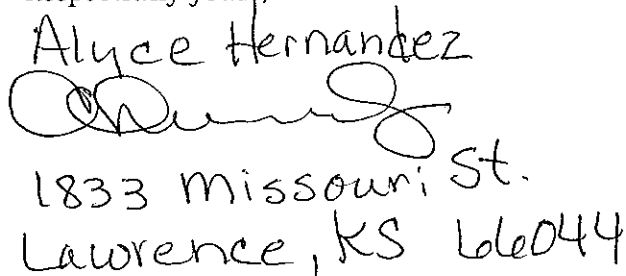 Alyce Hernandez
1833 Missouri St.
Lawrence, KS 66044